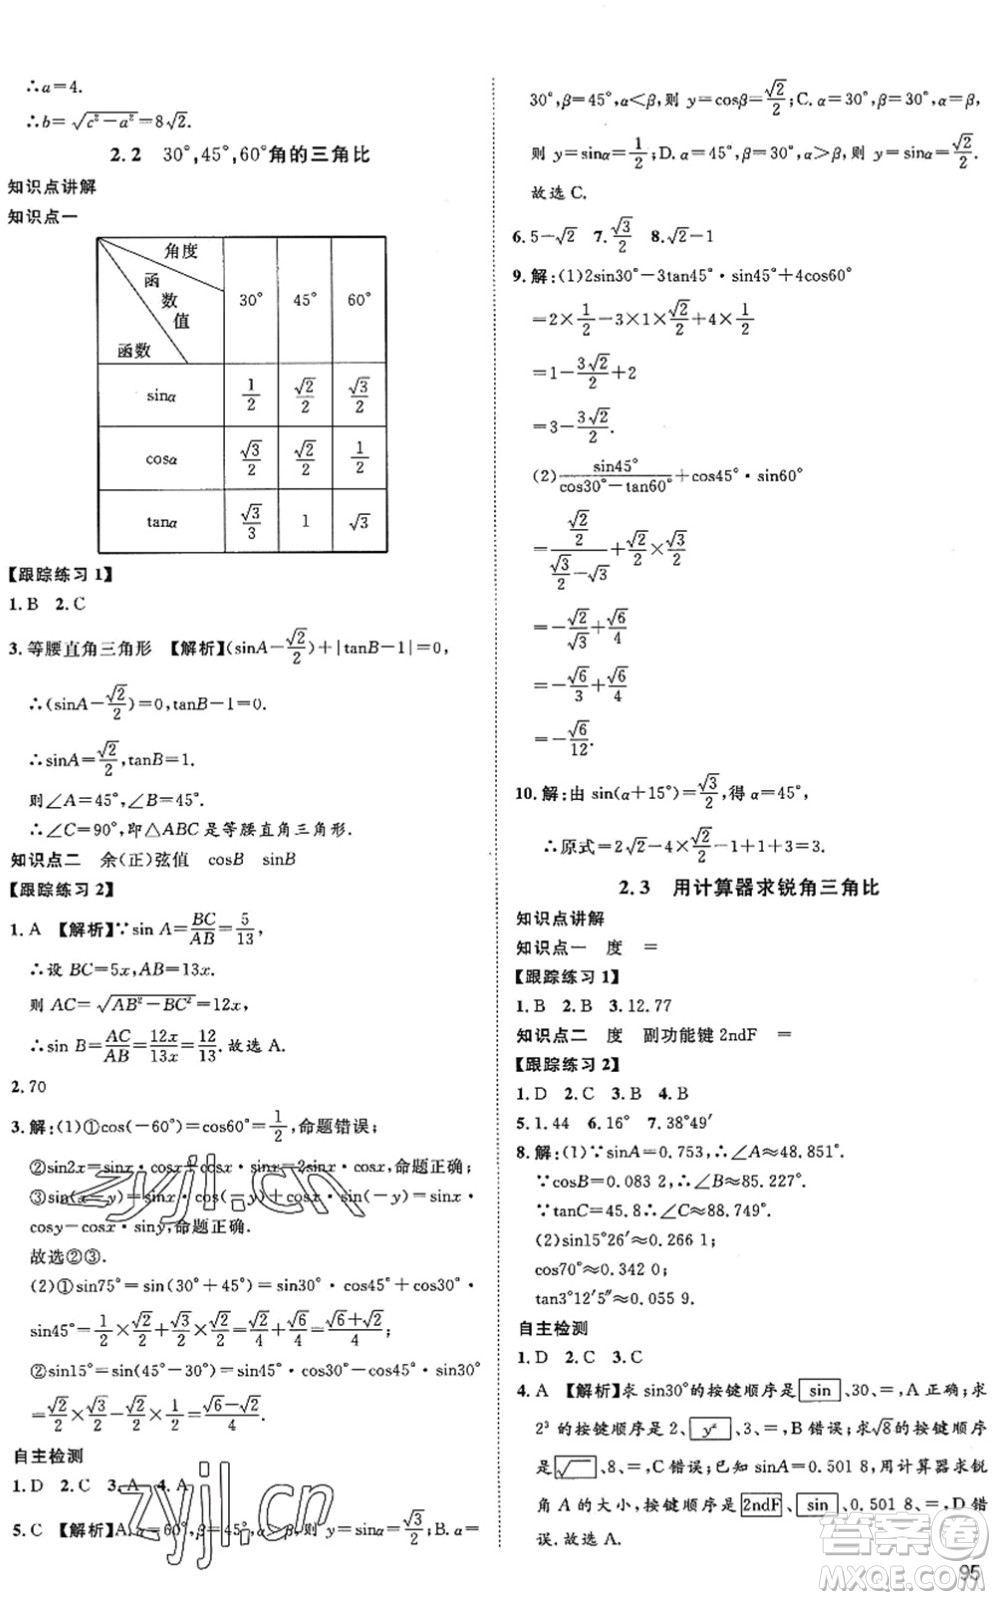 ∴a=4.
∴b=√(c²-a²)=8√2.
2.2 30°,45°,60°角的三角比
知识点讲解
知识点一
角度
函
数
值
函数
30° 45° 60°
sinα 1/2 √2/2 √3/2
cosα √3/2 √2/2 1/2
tanα √3/3 1 √3
【跟踪练习1】
1.B 2.C
3.等腰直角三角形 【解析】(sinA-√2/2)+|tanB-1|=0,
∴(sinA-√2/2)=0,tanB-1=0.
∴sinA=√2/2,tanB=1.
则∠A=45°,∠B=45°.
∴∠C=90°,即△ABC是等腰直角三角形.
知识点二 余(正)弦值 cosB sinB
【跟踪练习2】
1.A 【解析】∵sin A=BC/AB=5/13,
∴设 BC=5x,AB=13x.
则 AC=√(AB²-BC²)=12x,
∴sin B=AC/AB=12x/13x=12/13.故选A.
2.70
3.解:(1)①cos(-60°)=cos60°=1/2,命题错误;
②sin2x=sinx·cosx+cosx·sinx=2sinx·cosx,命题正确;
③sin(x-y)=sinx·cos(-y)+cosx·sin(-y)=sinx·
cosy-cosx·siny,命题正确.
故选②③.
(2)①sin75°=sin(30°+45°)=sin30°·cos45°+cos30°·
sin45°=1/2×√2/2+√3/2×√2/2=√2/4+√6/4=(√6+√2)/4;
②sin15°=sin(45°-30°)=sin45°·cos30°-cos45°·sin30°
=√2/2×√3/2-√2/2×1/2=(√6-√2)/4.
自主检测
1.D 2.C 3.A 4.A
5.C 【解析】A.α=60°,β=45°,α>β,则 y=sinα=√3/2;B.α=
30°,β=45°,α<β,则 y=cosβ=√2/2;C.α=30°,β=30°,α=β,
则 y=sinα=1/2;D.α=45°,β=30°,α>β,则 y=sinα=√2/2.
故选 C.
6.5-√2 7.√3/2 8.√2-1
9.解:(1)2sin30°-3tan45°·sin45°+4cos60°
=2×1/2-3×1×√2/2+4×1/2
=1-3√2/2+2
=3-3√2/2.
(2)sin45°/(cos30°-tan60°)+cos45°·sin60°
=(√2/2)/(√3/2-√3)+√2/2×√3/2
=-√2/√3+√6/4
=-√6/3+√6/4
=-√6/12.
10.解:由 sin(α+15°)=√3/2,得 α=45°,
∴原式=2√2-4×√2/2+1+1+1=3.
2.3 用计算器求锐角三角比
知识点讲解
知识点一 度 =
【跟踪练习1】
1.B 2.B 3.12.77
知识点二 度 副功能键2ndF =
【跟踪练习2】
1.D 2.C 3.B 4.B
5.1.44 6.16° 7.38°49′
8.解:(1)∵sinA=0.753,∴∠A≈48.851°.
∵cosB=0.083 2,∴∠B≈85.227°.
∵tanC=45.8∴∠C≈88.749°.
(2)sin15°26′≈0.266 1;
cos70°≈0.342 0;
tan3°12′5″≈0.055 9.
自主检测
1.D 2.C 3.C
4.A 【解析】求 sin30°的按键顺序是 sin、30、=,A 正确;求
2³ 的按键顺序是 2、yˣ、3、=,B 错误;求√8的按键顺序
是 √、8、=,C错误;已知 sinA=0.501 8,用计算器求锐
角A的大小,按键顺序是 2ndF、sin、0.501 8、=,D错误.
故选 A.
zyjl.cn
zyjl.cn
答案卷
95